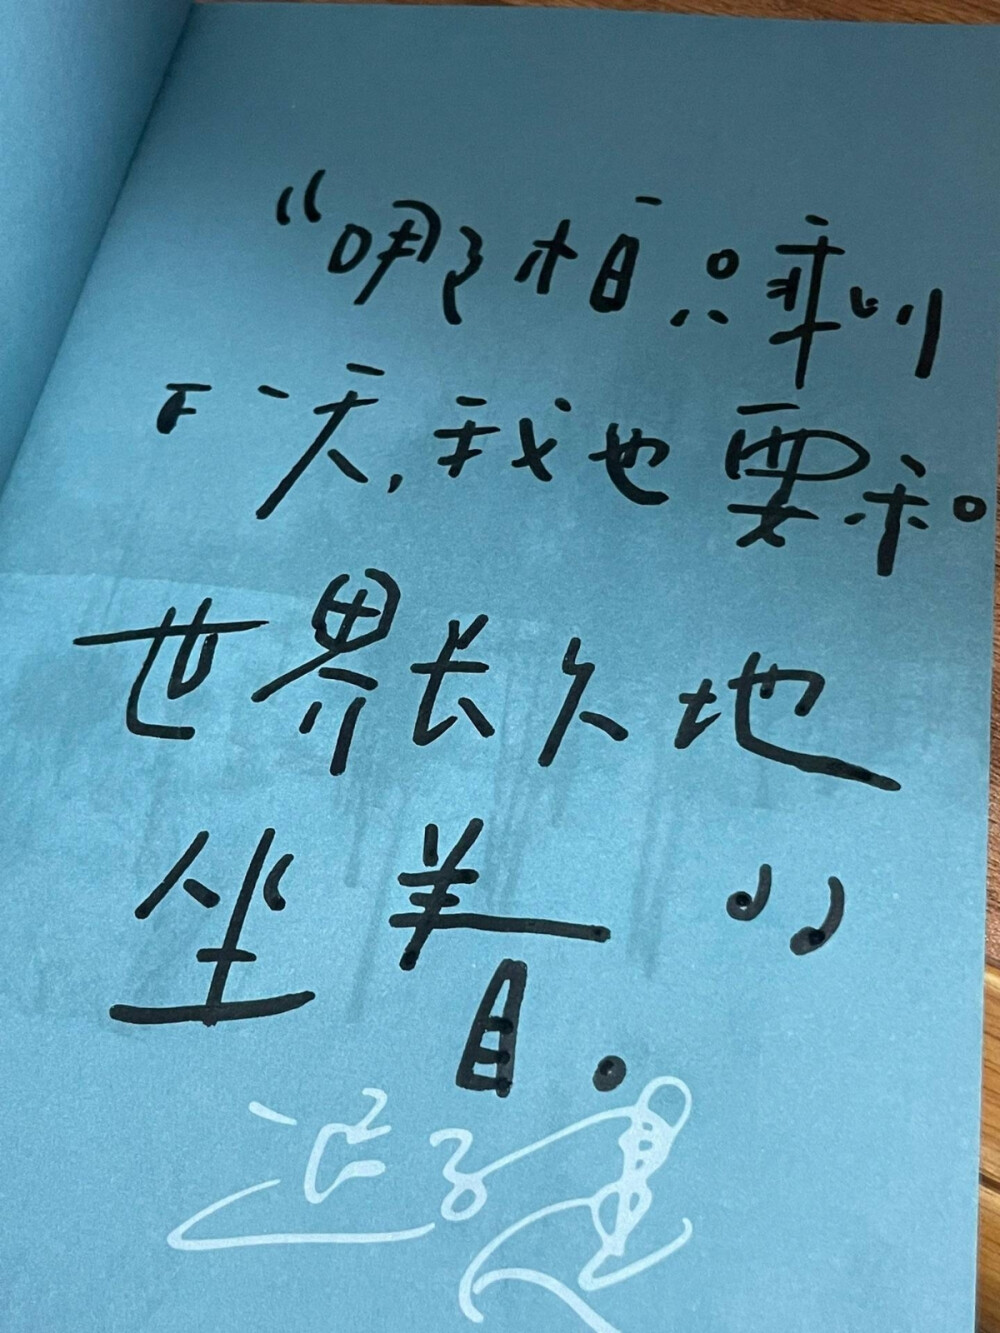 “哪怕只剩
下一天,我也要和
世界长久地
坐着”.
迟子建